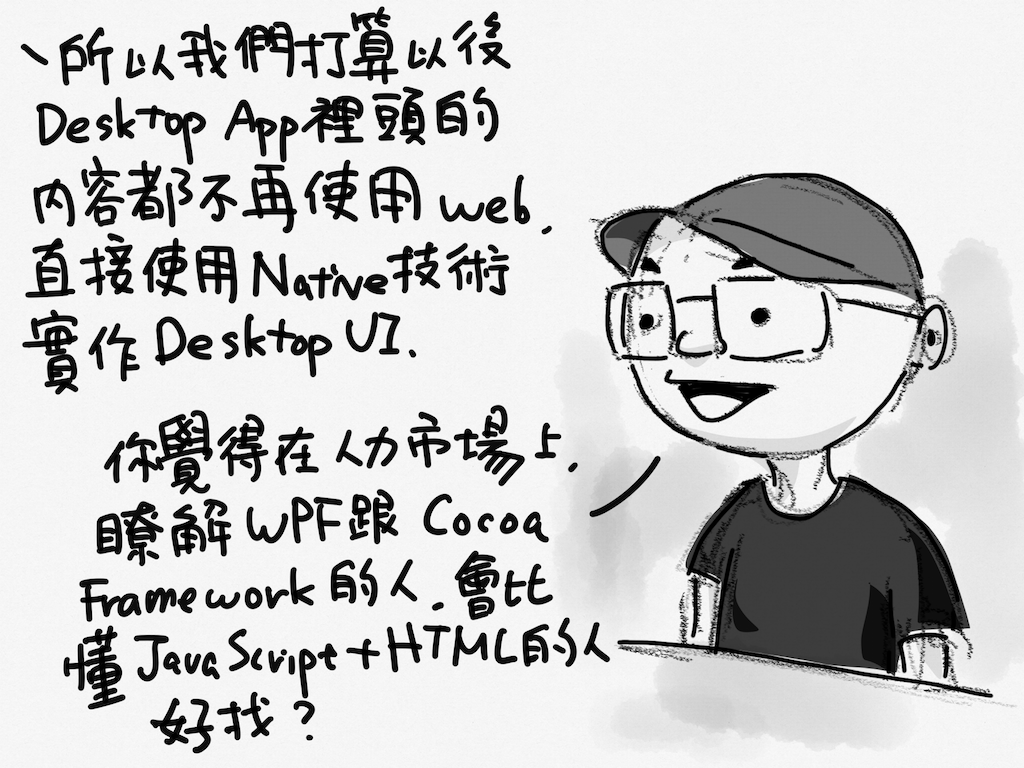 所以我們打算以後
Desktop App裡頭的
內容都不再使用 web,
直接使用Native技術
實作 Desktop UI.
你覺得在人力市場上,
瞭解 WPF跟 Cocoa
Framework 的人,會比
懂 JavaScript+HTML的人
好找?